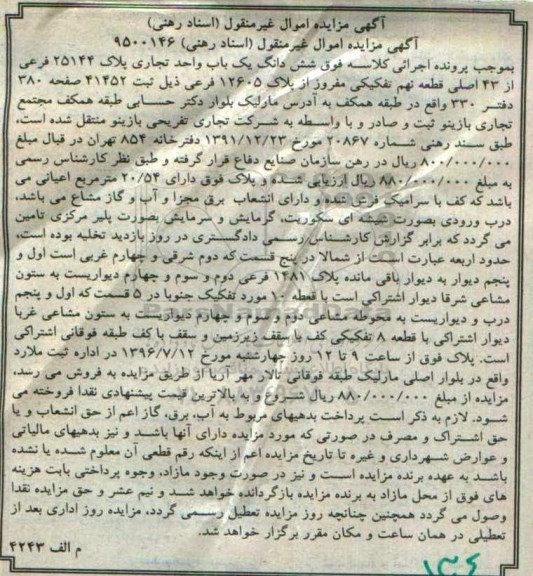 آگهی مزایده اموال غیرمنقول (اسناد رهنی)
آگهی مزایده اموال غیرمنقول (اسناد رهنی) ۹۵۰۰۱۴۶
بموجب پرونده اجرائی کلاسه فوق شش دانگ یک باب واحد تجاری پلاک ۲۵۱۴۴ فرعی
از ۴۳ اصلی قطعه نهم تفکیکی مفروز از پلاک ۱۲۶۰۵ فرعی ذیل ثبت ۴۱۴۵۲ صفحه ۳۸۰
دفتر ۳۳۰ واقع در طبقه همکف به آدرس مارلیک بلوار دکتر حسابی طبقه همکف مجتمع
تجاری بازینو ثبت و صادر و با واسطه به شرکت تجاری تفریحی بازینو منتقل شده است،
طبق سند رهنی شماره ۲۰۸۶۷ مورخ ۱۳۹۱/۱۲/۲۳ دفترخانه ۸۵۴ تهران در قبال مبلغ
۸۰۰/۰۰۰/۰۰۰ ریال در رهن سازمان صنایع دفاع قرار گرفته و طبق نظر کارشناس رسمی
به مبلغ ۸۸۰/۰۰۰/۰۰۰ ریال ارزیابی شده و پلاک فوق دارای ۲۰/۵۴ مترمربع اعیانی می
باشد که کف با سرامیک فرش شده و دارای انشعاب برق مجزا و آب و گاز مشاع می باشد،
درب ورودی بصورت شیشه ای سکوریت، گرمایش و سرمایش بصورت پلیر مرکزی تامین
می گردد که برابر گزارش کارشناس رسمی دادگستری در روز بازدید تخلیه بوده است،
حدود اربعه عبارت است از شمالا در پنج قسمت که دوم شرقی و چهارم غربی است اول و
پنجم دیوار به دیوار باقی مانده پلاک ۱۴۸۱ فرعی دوم و سوم و چهارم دیواریست به ستون
مشاعی شرقا دیوار اشتراکی است با قطعه ۱۰ مورد تفکیک جنوبا در ۵ قسمت که اول و پنجم
درب و دیواریست به محوطه مشاعی دوم و سوم و چهارم دیواریست به ستون مشاعی غربا
دیوار اشتراکی با قطعه ۸ تفکیکی کف با سقف زیرزمین و سقف با کف طبقه فوقانی اشتراکی
است. پلاک فوق از ساعت ۹ تا ۱۲ روز چهارشنبه مورخ ۱۳۹۶/۷/۱۲ در اداره ثبت ملارد
واقع در بلوار اصلی مارلیک طبقه فوقانی تالار مهر آریا از طریق مزایده به فروش می رسد،
مزایده از مبلغ ۸۸۰/۰۰۰/۰۰۰ ریال شروع و به بالاترین قیمت پیشنهادی نقدا فروخته می
شود. لازم به ذکر است پرداخت بدهیهای مربوط به آب، برق، گاز اعم از حق انشعاب و یا
حق اشتراک و مصرف در صورتی که مورد مزایده دارای آنها باشد و نیز بدهیهای مالیاتی
و عوارض شهرداری و غیره تا تاریخ مزایده اعم از اینکه رقم قطعی آن معلوم شده یا نشده
باشد به عهده برنده مزایده است و نیز در صورت وجود مازاد، وجوه پرداختی بابت هزینه
های فوق از محل مازاد به برنده مزایده بازگردانده خواهد شد و نیم عشر و حق مزایده نقدا
وصول می گردد همچنین چنانچه روز مزایده تعطیل رسمی گردد، مزایده روز اداری بعد از
تعطیلی در همان ساعت و مکان مقرر برگزار خواهد شد.
م الف ۴۲۴۳